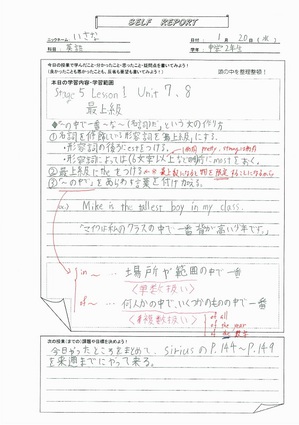 SELF REPORT
ニックネーム: いさな
日付: 1月20日(水)
科目: 英語
学年: 中学2年生
今日の授業で学んだこと・分かったこと・思ったこと・疑問点を書いてみよう!
(良かったことも悪かったことも、反省も展望も書いてみよう!)
頭の中を整理整頓!
本日の学習内容・学習範囲
Stage 5 Lesson 1 Unit 7、8
最上級
◆「〜の中で一番…な〜(名詞)だ」という文の作り方
①名詞を修飾している形容詞を最上級にする。
・形容詞の後ろにestをつける。
・形容詞によっては(6文字以上など)前にmostをおく。
②最上級にtheをつける
③「〜の中で」をあらわす言葉を付け加える。
ex) Mike is the tallest boy in my class.
「マイクは私のクラスの中で一番背が高い少年です。」
in 〜 … 場所や範囲の中で一番
<単数扱い>
of 〜 … 何人かの中で、いくつかのものの中で一番
<複数扱い>
of all
of the year
of the 数字
次の授業(まで)の課題や目標を決めよう!
今日やったところをまとめて、siriusのP.144〜P.149
を来週までにやって来る。